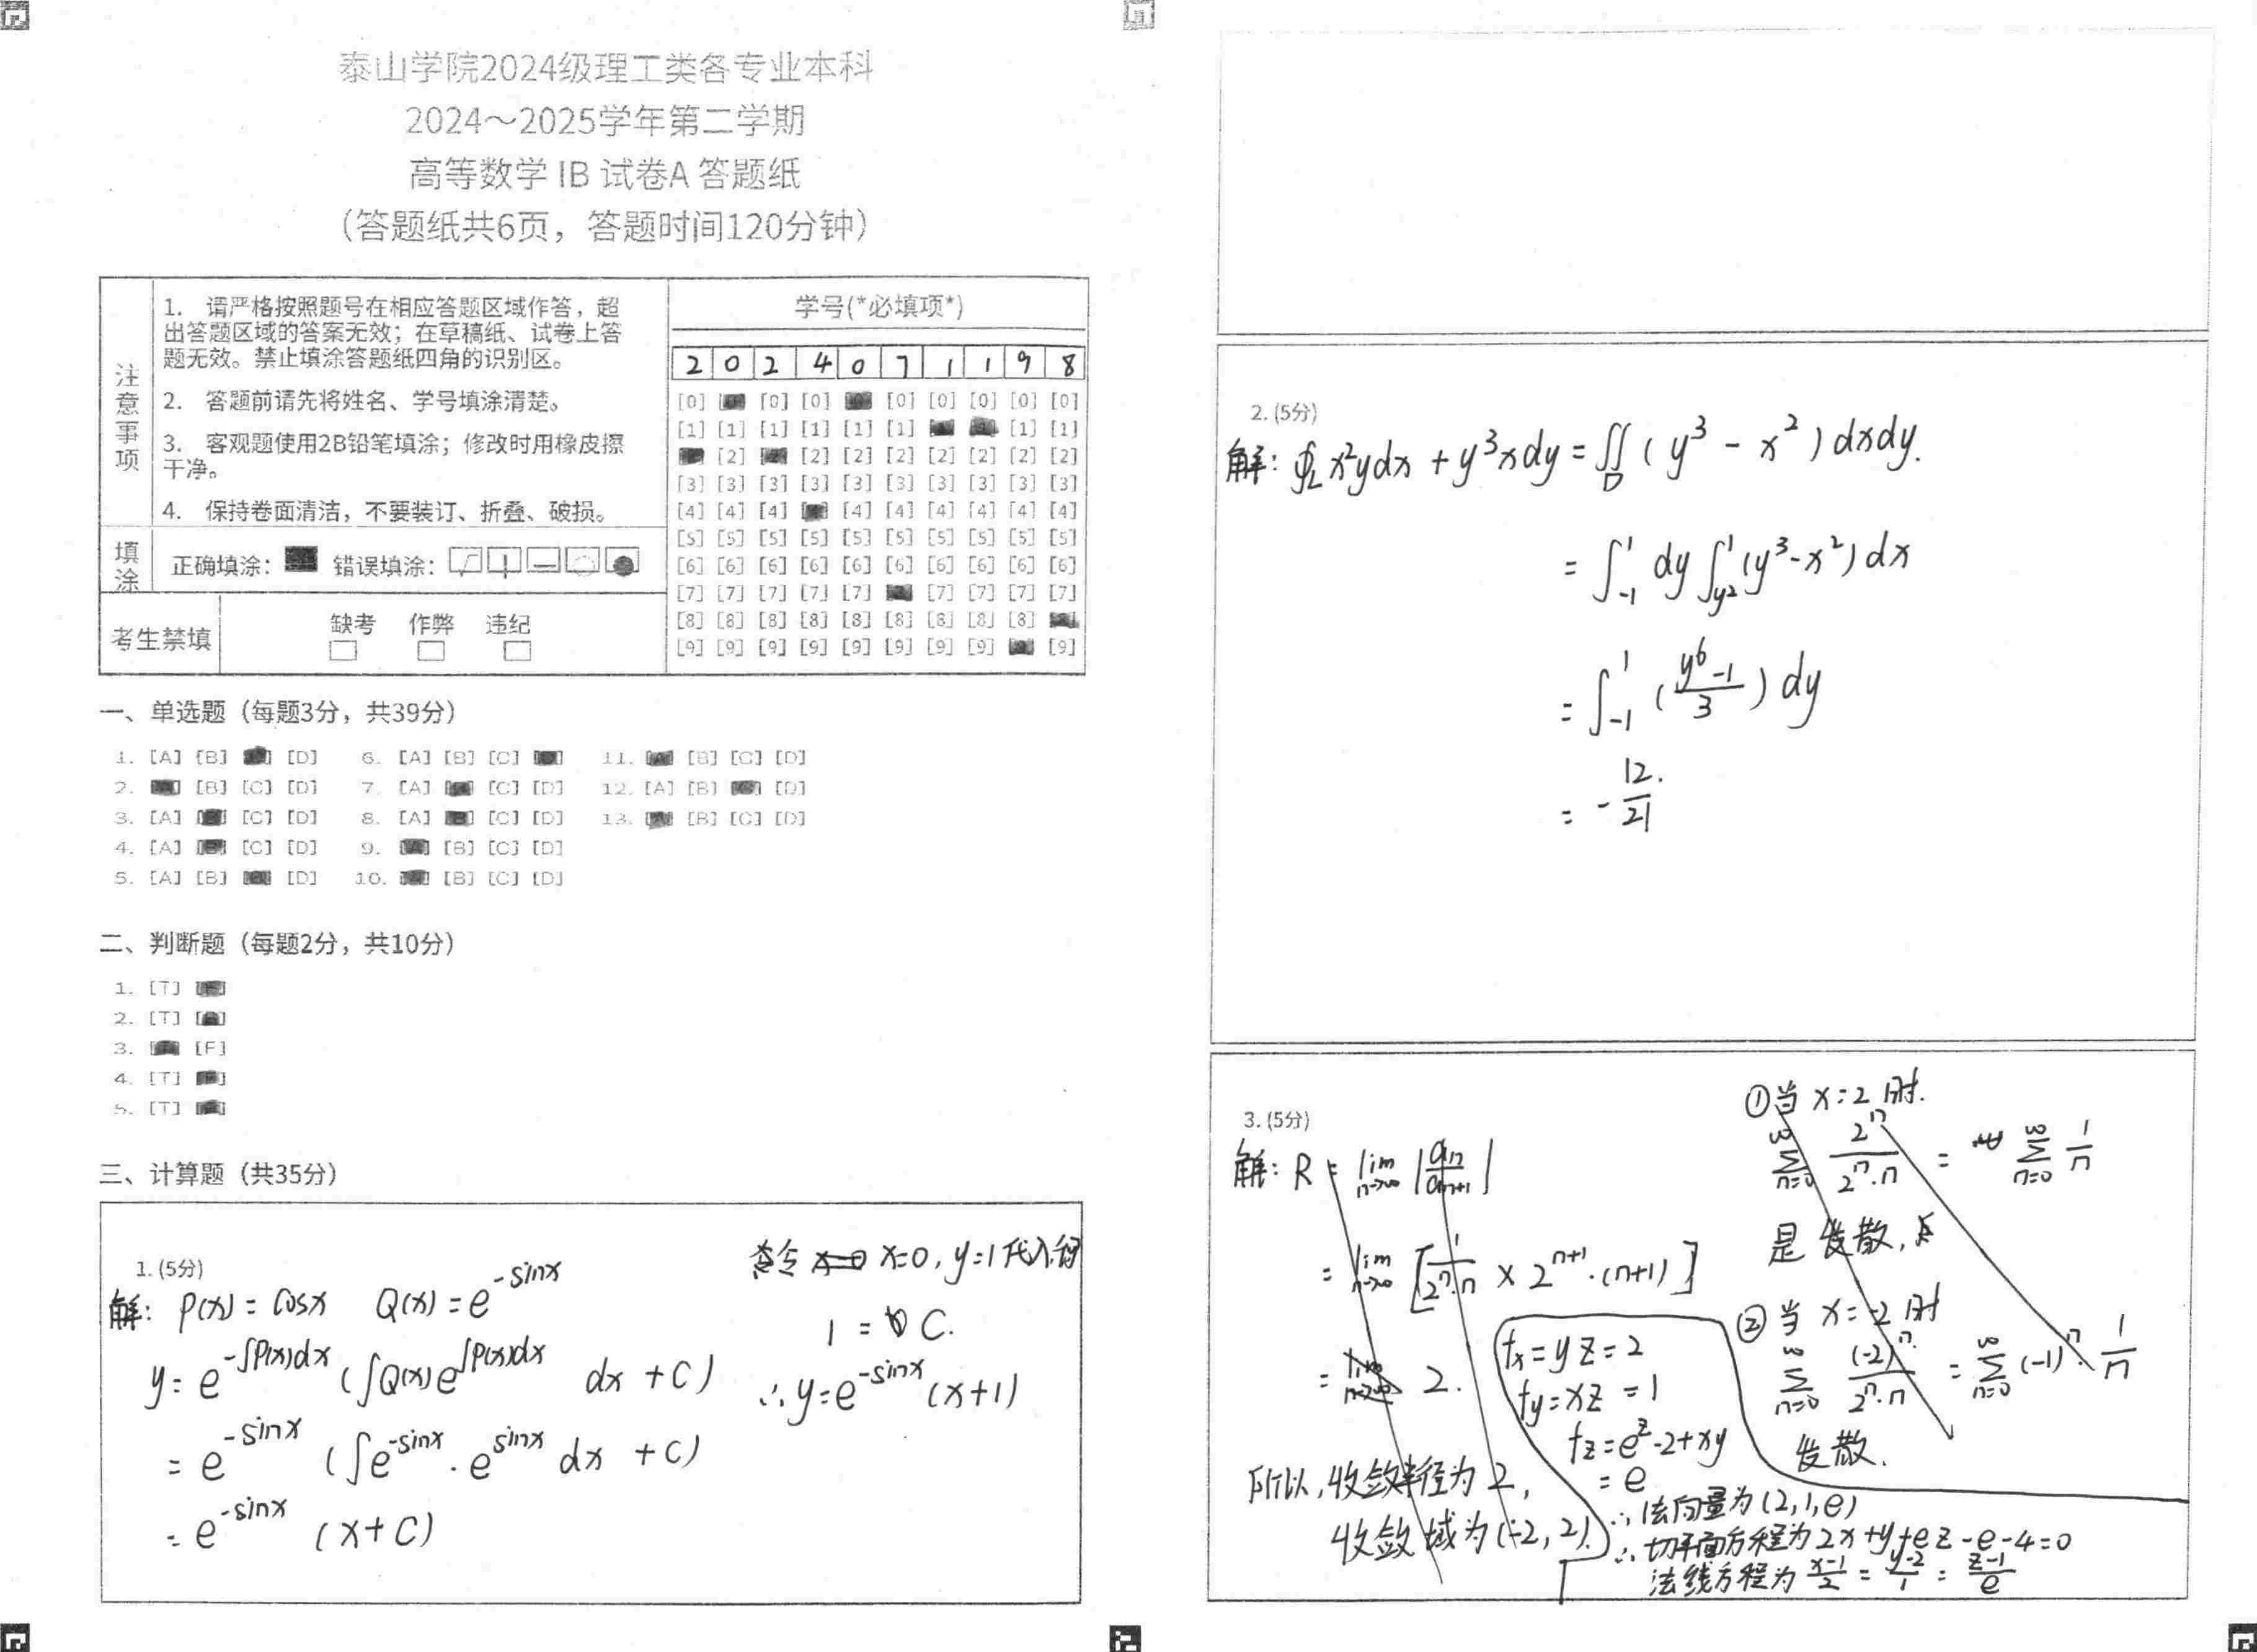 泰山学院2024级理工类各专业本科
2024～2025学年第二学期
高等数学 IB 试卷A 答题纸
（答题纸共6页，答题时间120分钟）
注意事项
1. 请严格按照题号在相应答题区域作答，超
出答题区域的答案无效；在草稿纸、试卷上答
题无效。禁止填涂答题纸四角的识别区。
2. 答题前请先将姓名、学号填涂清楚。
3. 客观题使用2B铅笔填涂；修改时用橡皮擦
干净。
4. 保持卷面清洁，不要装订、折叠、破损。
填涂
正确填涂： 错误填涂：
考生禁填
缺考 作弊 违纪
学号(*必填项*)
2 0 2 4 0 7 1 1 9 8
[0] [0] [0] [0] [0] [0] [0] [0]
[1] [1] [1] [1] [1] [1] [1] [1]
[2] [2] [2] [2] [2] [2] [2] [2]
[3] [3] [3] [3] [3] [3] [3] [3] [3] [3]
[4] [4] [4] [4] [4] [4] [4] [4] [4]
[5] [5] [5] [5] [5] [5] [5] [5] [5] [5]
[6] [6] [6] [6] [6] [6] [6] [6] [6] [6]
[7] [7] [7] [7] [7] [7] [7] [7] [7]
[8] [8] [8] [8] [8] [8] [8] [8] [8]
[9] [9] [9] [9] [9] [9] [9] [9] [9]
一、单选题（每题3分，共39分）
1. [A] [B] [D] 6. [A] [B] [C] 11. [B] [C] [D]
2. [B] [C] [D] 7. [A] [C] [D] 12. [A] [B] [D]
3. [A] [C] [D] 8. [A] [C] [D] 13. [B] [C] [D]
4. [A] [C] [D] 9. [B] [C] [D]
5. [A] [B] [D] 10. [B] [C] [D]
二、判断题（每题2分，共10分）
1. [T]
2. [T]
3. [F]
4. [T]
5. [T]
三、计算题（共35分）
1. (5分)
解: P(x) = cosx Q(x) = e^{-sinx}
y = e^{-∫P(x)dx} (∫Q(x)e^{∫P(x)dx} dx + C)
= e^{-sinx} (∫e^{-sinx} · e^{sinx} dx + C)
= e^{-sinx} (x + C)
令 x=0, y=1代入得
1 = C.
∴ y=e^{-sinx}(x+1)
2. (5分)
解: ∮_L x²ydx + y³xdy = ∬_D (y³ - x²) dxdy.
= ∫_{-1}^{1} dy ∫_{y²}^{1} (y³-x²) dx
= ∫_{-1}^{1} (\frac{y⁶-1}{3}) dy
= -\frac{12}{21}
3. (5分)
解: R = lim_{n→∞} |\frac{a_n}{a_{n+1}}|
= lim_{n→∞} [\frac{1}{2^n·n} × 2^{n+1}·(n+1)]
= 2.
所以, 收敛半径为 2,
收敛域为(-2, 2).
①当 x=2 时.
∑_{n=0}^{∞} \frac{2^n}{2^n·n} = ∑_{n=0}^{∞} \frac{1}{n}
是发散,
②当 x=-2 时
∑_{n=0}^{∞} \frac{(-2)^n}{2^n·n} = ∑_{n=0}^{∞} (-1)^n · \frac{1}{n}
发散.
fx = yz = 2
fy = xz = 1
fz = e^z-2+xy
= e
∴ 法向量为(2,1,e)
∴ 切平面方程为 2x+y+ez-e-4=0
法线方程为 \frac{x-1}{2} = \frac{y-2}{1} = \frac{z-1}{e}